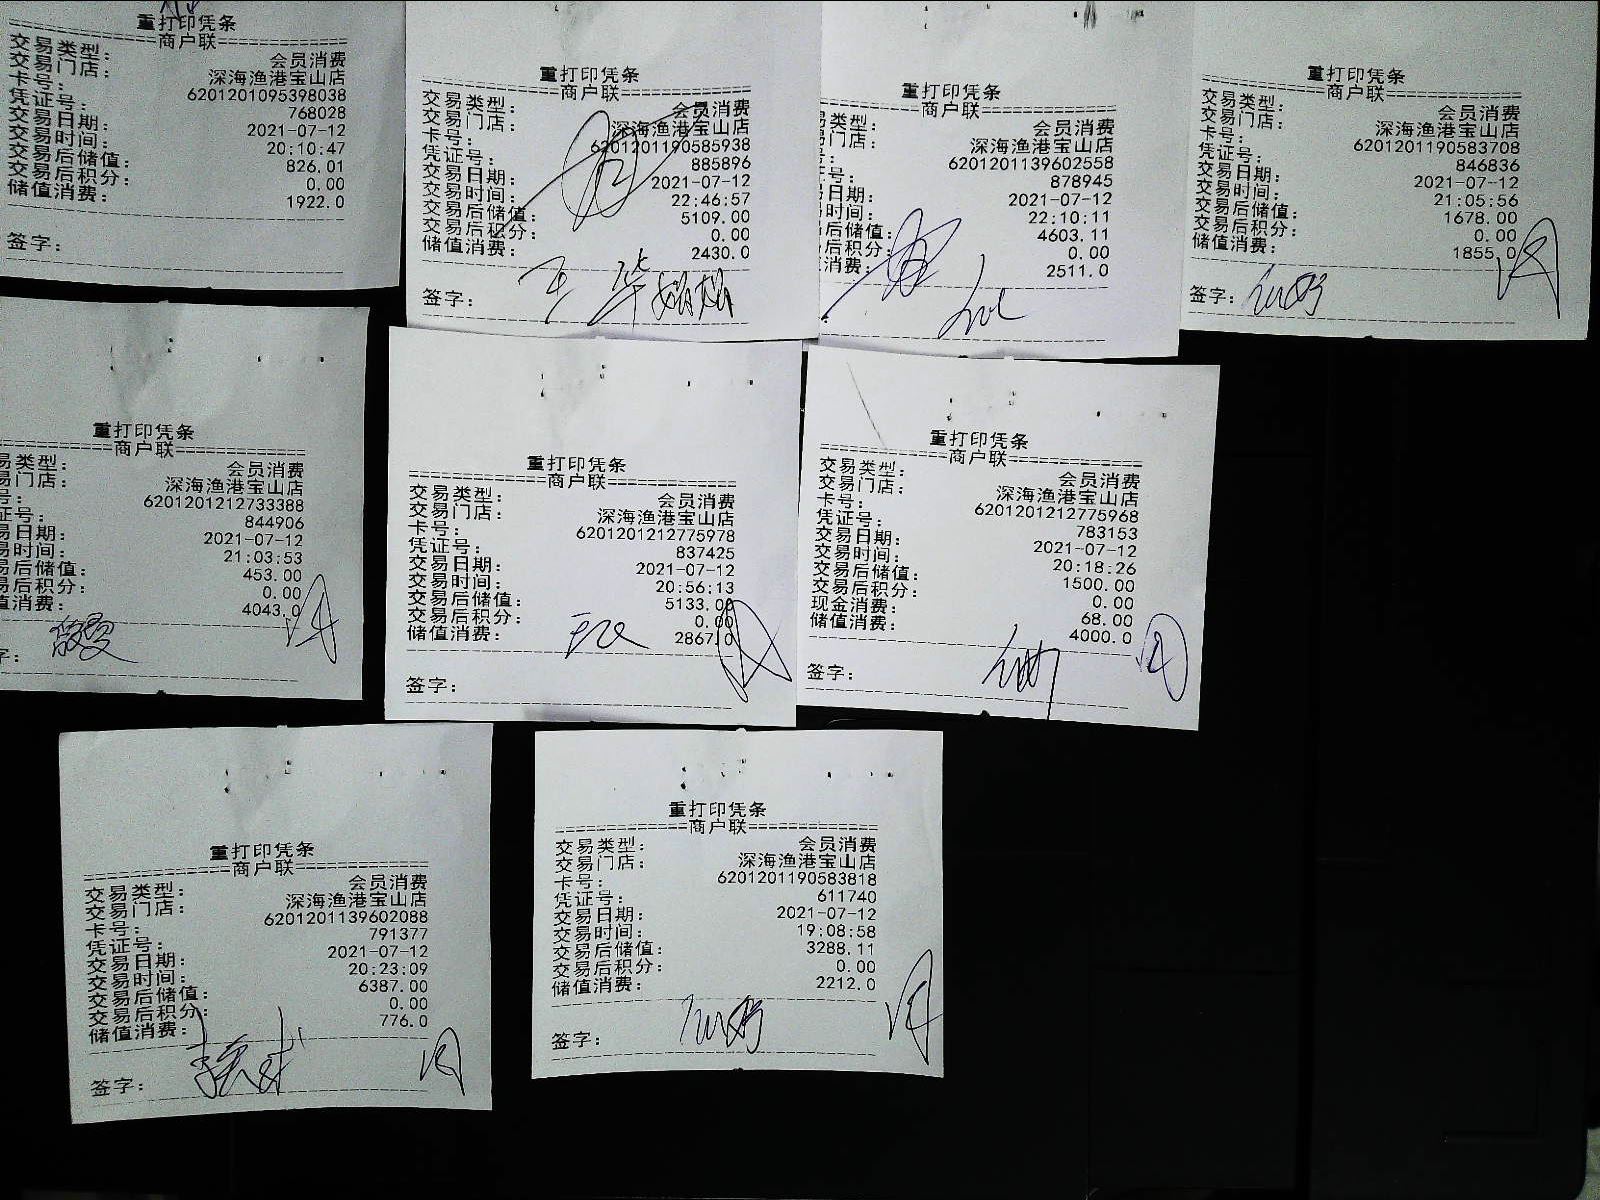 重打印凭条
==============商户联==============
交易类型: 会员消费
交易门店: 深海渔港宝山店
卡号: 6201201095398038
凭证号: 768028
交易日期: 2021-07-12
交易时间: 20:10:47
交易后储值: 826.01
交易后积分: 0.00
储值消费: 1922.0
签字:
重打印凭条
==============商户联==============
交易类型: 会员消费
交易门店: 深海渔港宝山店
卡号: 6201201190585938
凭证号: 885896
交易日期: 2021-07-12
交易时间: 22:46:57
交易后储值: 5109.00
交易后积分: 0.00
储值消费: 2430.0
签字:
重打印凭条
==============商户联==============
易类型: 会员消费
门店: 深海渔港宝山店
: 6201201139602558
号: 878945
日期: 2021-07-12
时间: 22:10:11
后储值: 4603.11
后积分: 0.00
消费: 2511.0
重打印凭条
==============商户联==============
交易类型: 会员消费
交易门店: 深海渔港宝山店
卡号: 6201201190583708
凭证号: 846836
交易日期: 2021-07-12
交易时间: 21:05:56
交易后储值: 1678.00
交易后积分: 0.00
储值消费: 1855.0
签字:
重打印凭条
==============商户联==============
易类型: 会员消费
易门店: 深海渔港宝山店
号: 6201201212733388
证号: 844906
易日期: 2021-07-12
易时间: 21:03:53
易后储值: 453.00
易后积分: 0.00
值消费: 4043.0
字:
重打印凭条
==============商户联==============
交易类型: 会员消费
交易门店: 深海渔港宝山店
卡号: 6201201212775978
凭证号: 837425
交易日期: 2021-07-12
交易时间: 20:56:13
交易后储值: 5133.00
交易后积分: 0.00
储值消费: 2867.0
签字:
重打印凭条
==============商户联==============
交易类型: 会员消费
交易门店: 深海渔港宝山店
卡号: 6201201212775968
凭证号: 783153
交易日期: 2021-07-12
交易时间: 20:18:26
交易后储值: 1500.00
交易后积分: 0.00
现金消费: 68.00
储值消费: 4000.0
签字:
重打印凭条
==============商户联==============
交易类型: 会员消费
交易门店: 深海渔港宝山店
卡号: 6201201139602088
凭证号: 791377
交易日期: 2021-07-12
交易时间: 20:23:09
交易后储值: 6387.00
交易后积分: 0.00
储值消费: 776.0
签字:
重打印凭条
==============商户联==============
交易类型: 会员消费
交易门店: 深海渔港宝山店
卡号: 6201201190583818
凭证号: 611740
交易日期: 2021-07-12
交易时间: 19:08:58
交易后储值: 3288.11
交易后积分: 0.00
储值消费: 2212.0
签字: